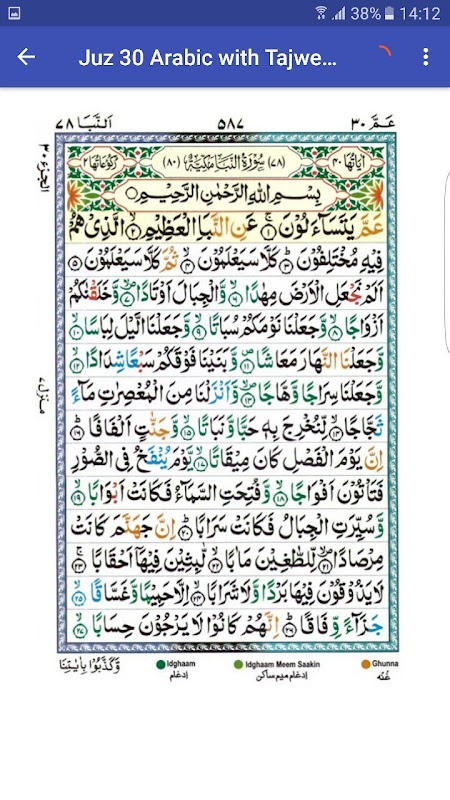 38% 14:12
Juz 30 Arabic with Tajwe...
عَمَّ ٣٠
٥٨٧
اَلنَّبَا ٧٨
اٰيَاتُهَا ٤٠ (٧٨) سُوْرَةُ النَّبَاِ مَكِّيَّةٌ (٨٠) رُكُوْعَاتُهَا ٢
بِسْمِ اللّٰهِ الرَّحْمٰنِ الرَّحِيْمِ
عَمَّ يَتَسَآءَلُوْنَ ۝١ عَنِ النَّبَاِ الْعَظِيْمِ ۝٢ الَّذِيْ هُمْ
فِيْهِ مُخْتَلِفُوْنَ ۝٣ كَلَّا سَيَعْلَمُوْنَ ۝٤ ثُمَّ كَلَّا سَيَعْلَمُوْنَ ۝٥
اَلَمْ نَجْعَلِ الْاَرْضَ مِهٰدًا ۝٦ وَّالْجِبَالَ اَوْتَادًا ۝٧ وَّخَلَقْنٰكُمْ
اَزْوَاجًا ۝٨ وَّجَعَلْنَا نَوْمَكُمْ سُبَاتًا ۝٩ وَّجَعَلْنَا الَّيْلَ لِبَاسًا ۝١٠
وَّجَعَلْنَا النَّهَارَ مَعَاشًا ۝١١ وَّبَنَيْنَا فَوْقَكُمْ سَبْعًا شِدَادًا ۝١٢
وَّجَعَلْنَا سِرَاجًا وَّهَّاجًا ۝١٣ وَّاَنْزَلْنَا مِنَ الْمُعْصِرٰتِ مَآءً
ثَجَّاجًا ۝١٤ لِّنُخْرِجَ بِهٖ حَبًّا وَّنَبَاتًا ۝١٥ وَّجَنّٰتٍ اَلْفَافًا ۝١٦
اِنَّ يَوْمَ الْفَصْلِ كَانَ مِيْقَاتًا ۝١٧ يَّوْمَ يُنْفَخُ فِى الصُّوْرِ
فَتَاْتُوْنَ اَفْوَاجًا ۝١٨ وَّفُتِحَتِ السَّمَآءُ فَكَانَتْ اَبْوَابًا ۝١٩
وَّسُيِّرَتِ الْجِبَالُ فَكَانَتْ سَرَابًا ۝٢٠ اِنَّ جَهَنَّمَ كَانَتْ
مِرْصَادًا ۝٢١ لِّلطّٰغِيْنَ مَاٰبًا ۝٢٢ لّٰبِثِيْنَ فِيْهَآ اَحْقَابًا ۝٢٣
لَا يَذُوْقُوْنَ فِيْهَا بَرْدًا وَّلَا شَرَابًا ۝٢٤ اِلَّا حَمِيْمًا وَّغَسَّاقًا ۝٢٥
جَزَآءً وِّفَاقًا ۝٢٦ اِنَّهُمْ كَانُوْا لَا يَرْجُوْنَ حِسَابًا ۝٢٧
وَّكَذَّبُوْا بِاٰيٰتِنَا
Idghaam
ادغام
Idghaam Meem Saakin
ادغام میم ساکن
Ghunna
غُنّه
الجزء ٣٠
منزل ٧